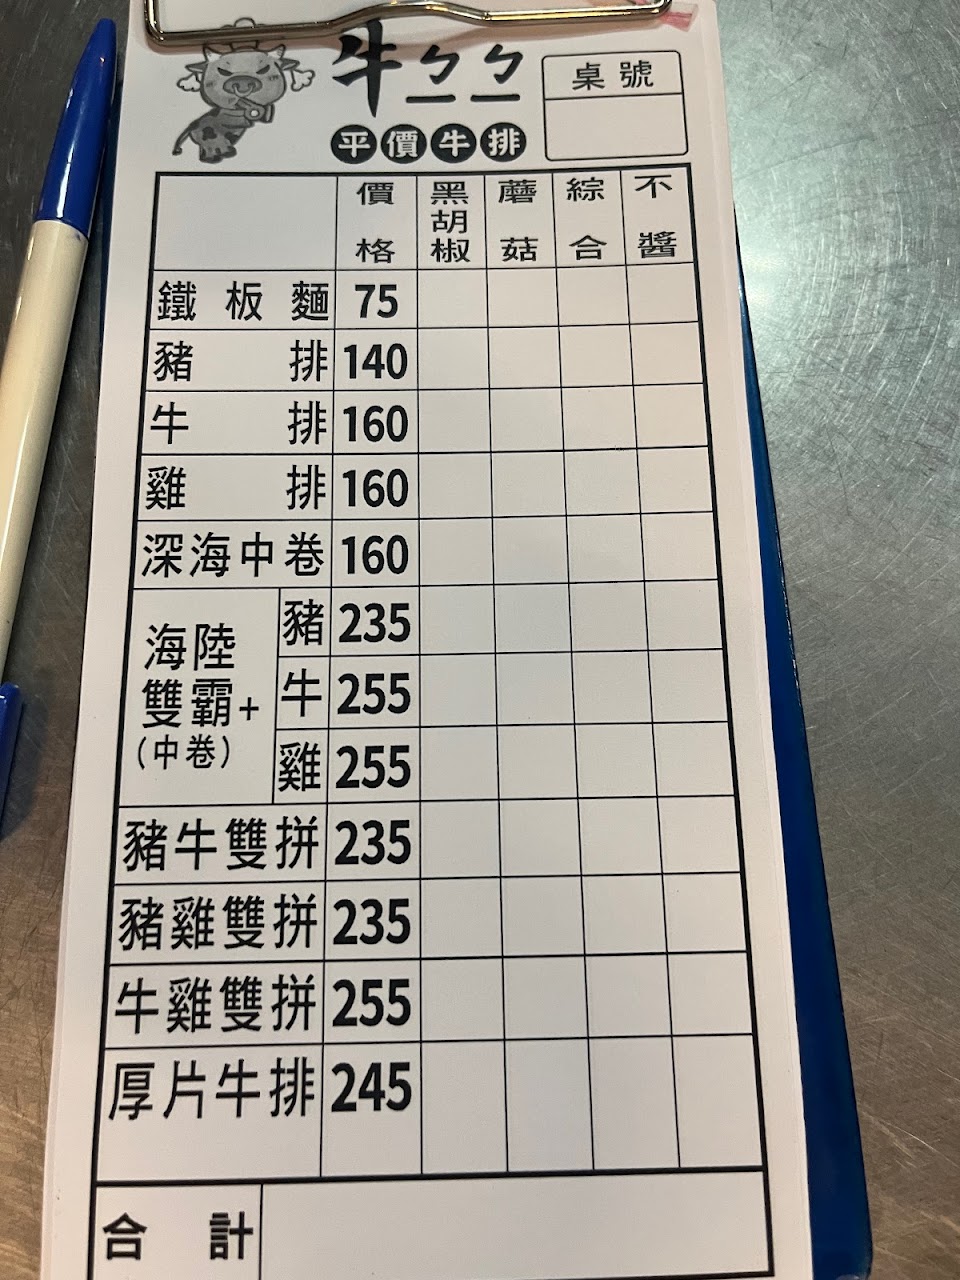 牛ㄅㄅ
平價牛排
桌號
價格 黑胡椒 蘑菇 綜合 不醬
鐵板麵 75
豬排 140
牛排 160
雞排 160
深海中卷 160
海陸雙霸+(中卷)
豬 235
牛 255
雞 255
豬牛雙拼 235
豬雞雙拼 235
牛雞雙拼 255
厚片牛排 245
合計